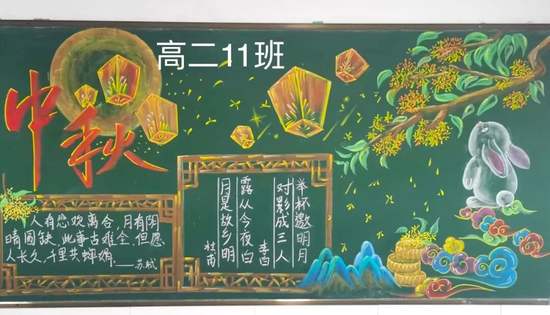 高二11班
中秋
人有悲欢离合，月有阴
晴圆缺，此事古难全，但愿
人长久，千里共婵娟。——苏轼
举杯邀明月
对影成三人
李白
露从今夜白
月是故乡明
杜甫